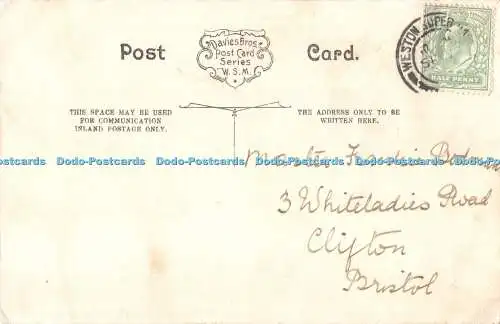 Post Card.
Davies Bros.
Post Card
Series
W.S.M.
WESTON SUPER
HALF PENNY
THIS SPACE MAY BE USED
FOR COMMUNICATION
INLAND POSTAGE ONLY.
THE ADDRESS ONLY TO BE
WRITTEN HERE.
Dodo-Postcards Dodo-Postcards Dodo-Postcards Dodo-Postcards
Master Francis
3 Whiteladies Road
Clifton
Bristol